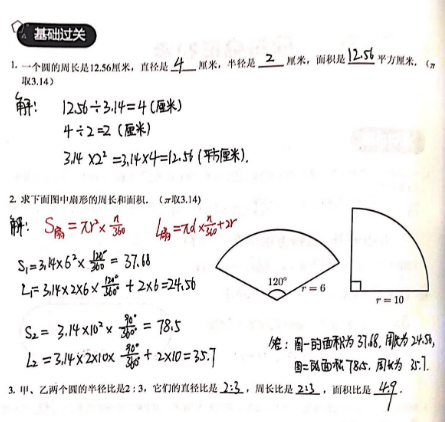 基础过关
1. 一个圆的周长是12.56厘米，直径是 4 厘米，半径是 2 厘米，面积是 12.56 平方厘米．（π
取3.14）
解： 12.56÷3.14=4（厘米）
4÷2=2（厘米）
3.14×2²=3.14×4=12.56（平方厘米）.
2. 求下面图中扇形的周长和面积．（π取3.14）
解： S扇=πr²×n/360 L扇=πd×n/360+2r
S₁=3.14×6²×120°/360°=37.68
L₁=3.14×2×6×120°/360°+2×6=24.56
120° r=6
r=10
S₂=3.14×10²×90°/360°=78.5
L₂=3.14×2×10×90°/360°+2×10=35.7
答：图一的面积为37.68，周长为24.56，
图二的面积78.5．周长为 35.7．
3. 甲、乙两个圆的半径比是2:3，它们的直径比是 2:3 ，周长比是 2:3 ，面积比是 4:9 ．